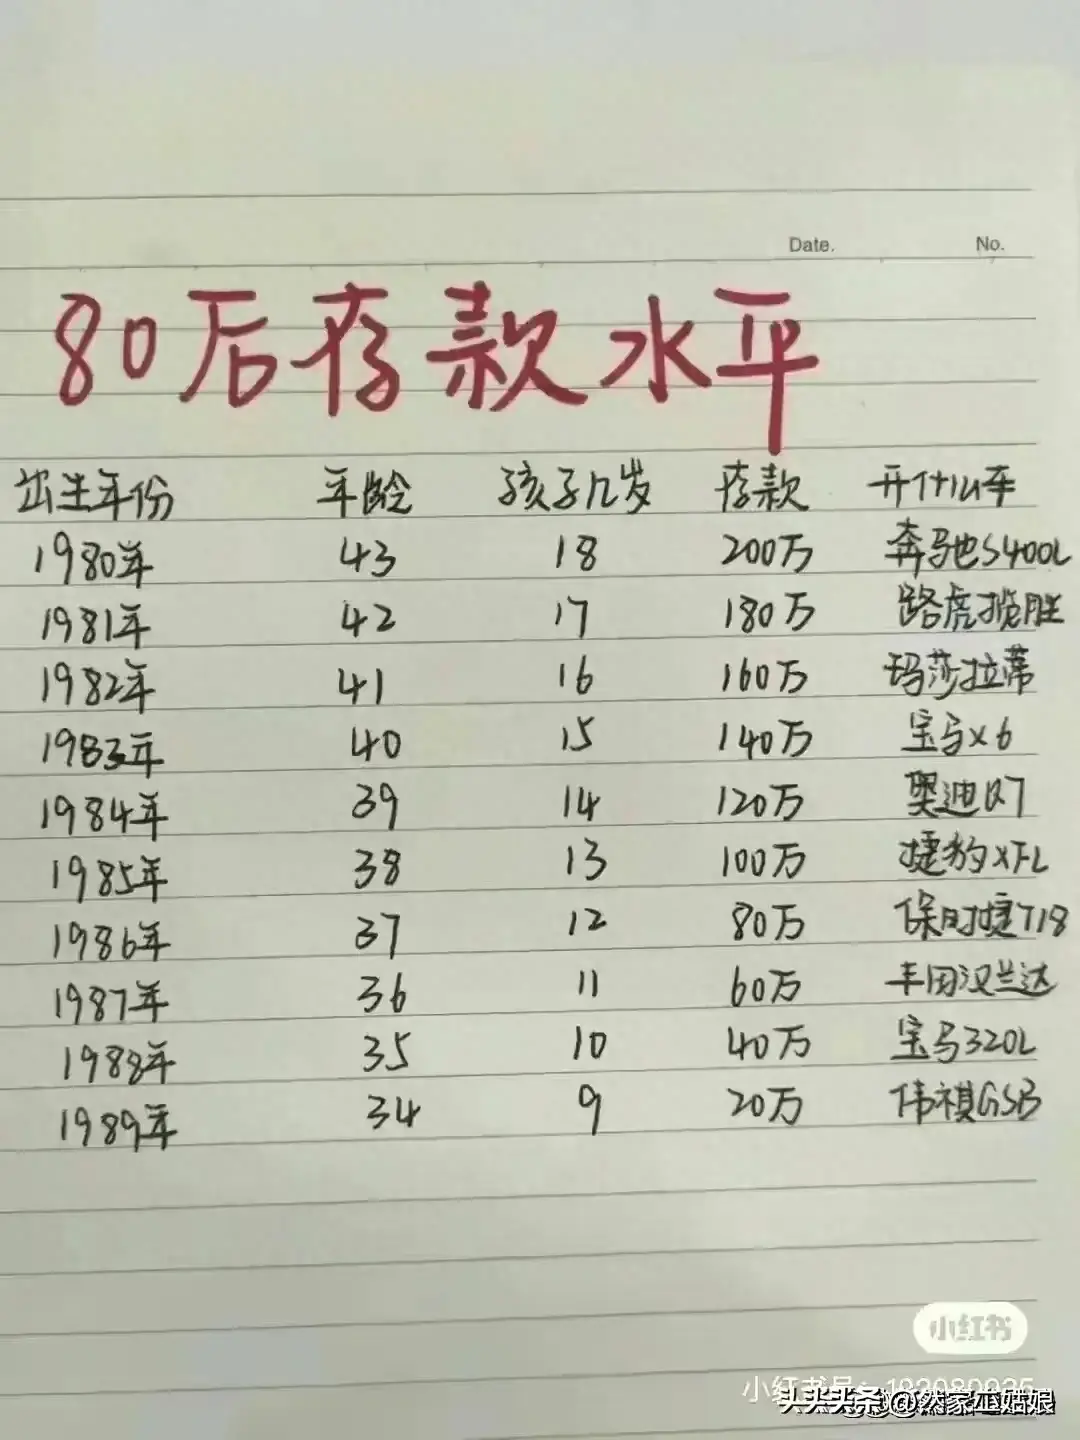 Date. No.
80后存款水平
出生年份 年龄 孩子几岁 存款 开什么车
1980年 43 18 200万 奔驰S400L
1981年 42 17 180万 路虎揽胜
1982年 41 16 160万 玛莎拉蒂
1983年 40 15 140万 宝马X6
1984年 39 14 120万 奥迪Q7
1985年 38 13 100万 捷豹XFL
1986年 37 12 80万 保时捷718
1987年 36 11 60万 丰田汉兰达
1988年 35 10 40万 宝马320L
1989年 34 9 20万 传祺GS8
小红书
小红书号:
头条 @然家亚姑娘